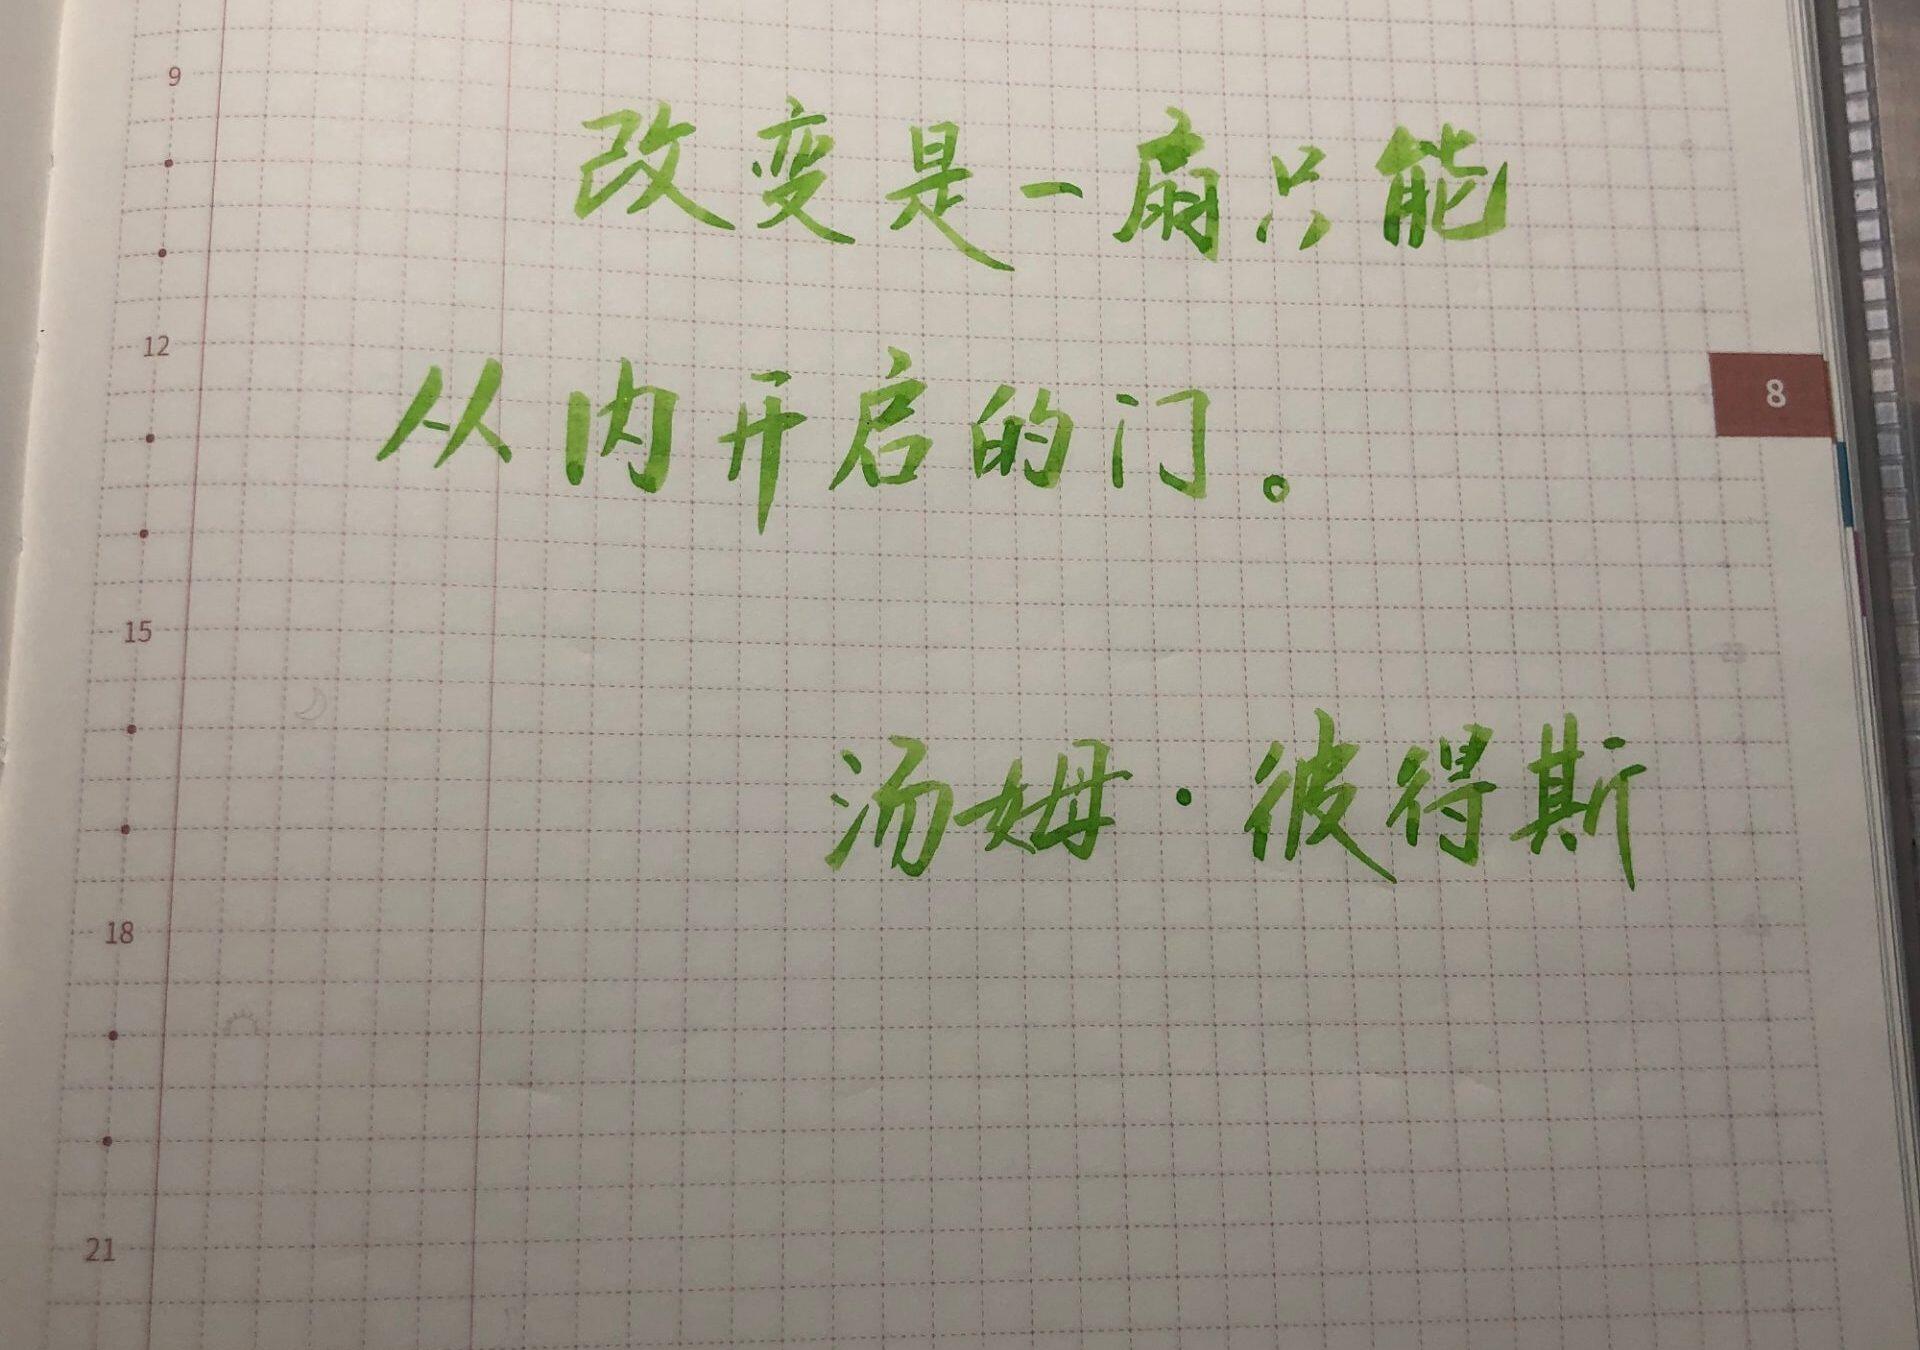 9
改变是一扇只能
12
8
从内开启的门。
15
汤姆·彼得斯
18
21